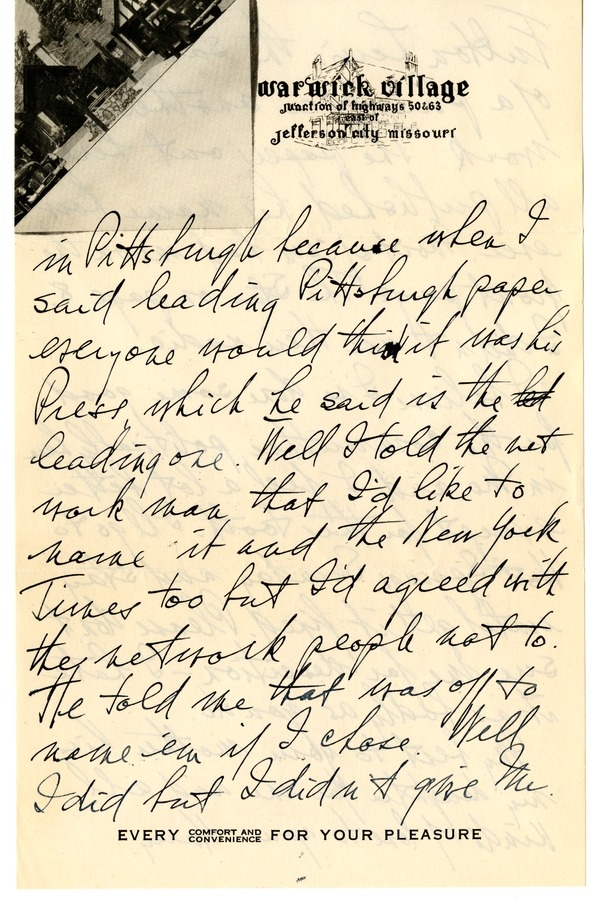 warwick village
junction of highways 50 & 63
east of
jefferson city missouri
in Pittsburgh because when I
said leading Pittsburgh paper
everyone would think it was his
Press, which he said is the
leading one. Well I told the net
work man that I'd like to
name it and the New York
Times too but I'd agreed with
the network people not to.
He told me that was off to
name 'em if I chose. Well
I did but I didn't give the
EVERY COMFORT AND CONVENIENCE FOR YOUR PLEASURE